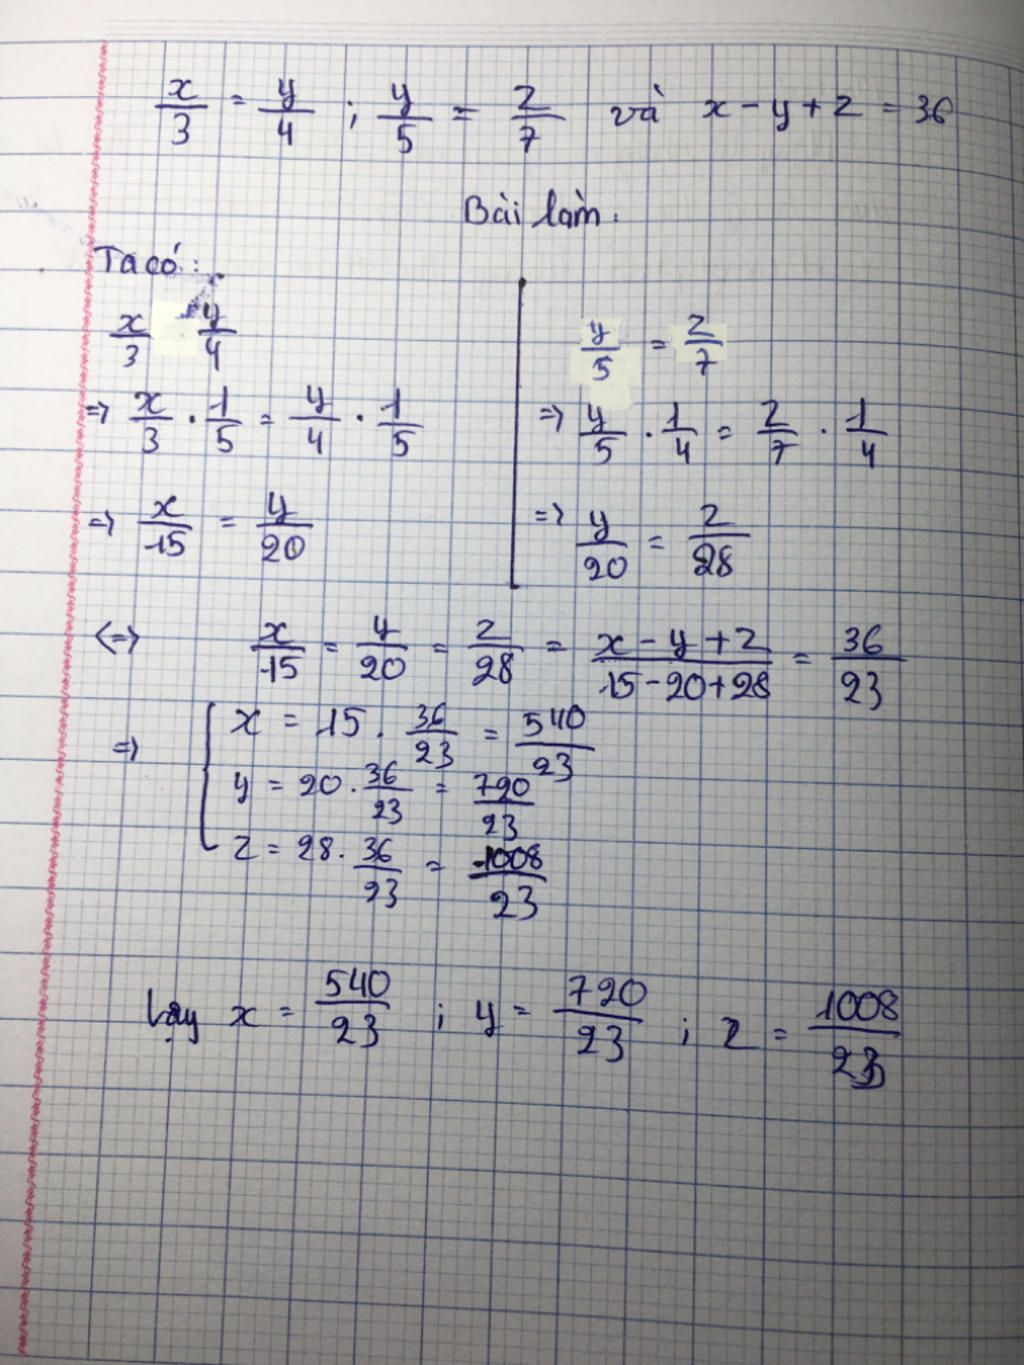 x/3 = y/4 ; y/5 = z/7 và x - y + z = 36
Bài làm.
Ta có :
x/3 y/4
=> x/3 . 1/5 = y/4 . 1/5
=> x/15 = y/20
y/5 = z/7
=> y/5 . 1/4 = z/7 . 1/4
=> y/20 = z/28
<=> x/15 = y/20 = z/28 = (x - y + z)/(15 - 20 + 28) = 36/23
=> { x = 15 . 36/23 = 540/23
y = 20 . 36/23 = 720/23
z = 28 . 36/23 = 1008/23
Vậy x = 540/23 ; y = 720/23 ; z = 1008/23